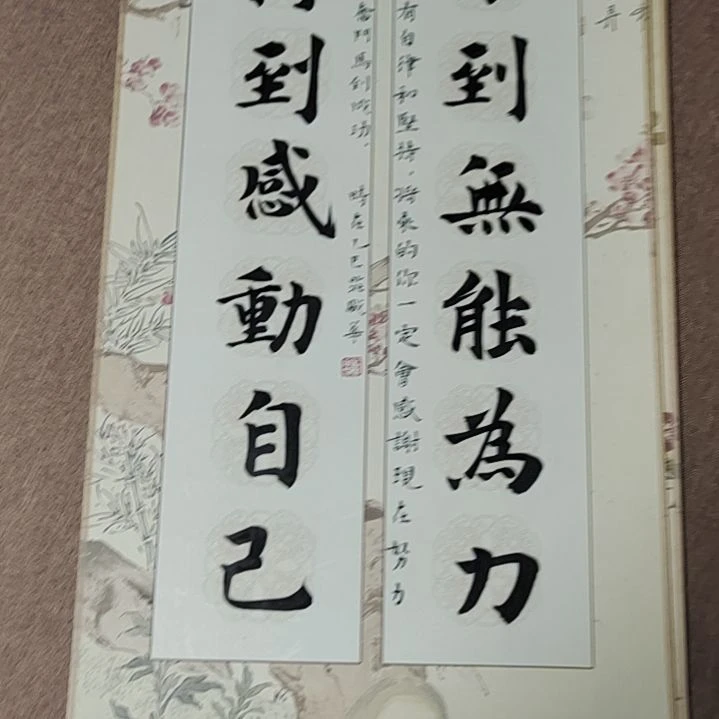 到無能為力
有自律和堅持，將來的你一定會感謝現在努力
到感動自己
奮鬥馬到成功。時在乙巳